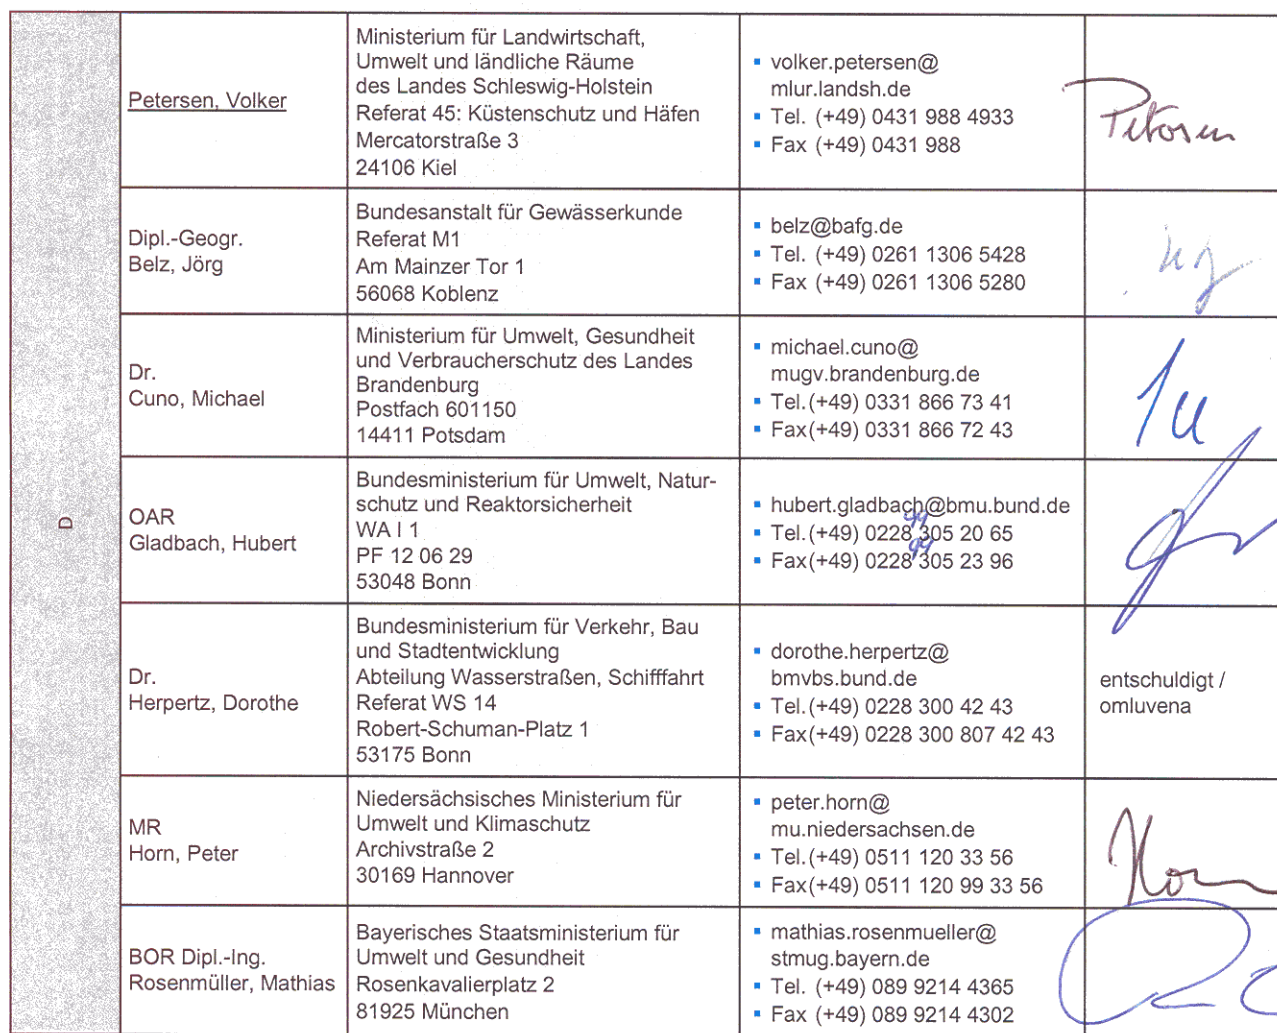 D
Petersen, Volker
Ministerium für Landwirtschaft,
Umwelt und ländliche Räume
des Landes Schleswig-Holstein
Referat 45: Küstenschutz und Häfen
Mercatorstraße 3
24106 Kiel
▪ volker.petersen@
mlur.landsh.de
▪ Tel. (+49) 0431 988 4933
▪ Fax (+49) 0431 988
Petersen
Dipl.-Geogr.
Belz, Jörg
Bundesanstalt für Gewässerkunde
Referat M1
Am Mainzer Tor 1
56068 Koblenz
▪ belz@bafg.de
▪ Tel. (+49) 0261 1306 5428
▪ Fax (+49) 0261 1306 5280
Dr.
Cuno, Michael
Ministerium für Umwelt, Gesundheit
und Verbraucherschutz des Landes
Brandenburg
Postfach 601150
14411 Potsdam
▪ michael.cuno@
mugv.brandenburg.de
▪ Tel.(+49) 0331 866 73 41
▪ Fax(+49) 0331 866 72 43
OAR
Gladbach, Hubert
Bundesministerium für Umwelt, Natur-
schutz und Reaktorsicherheit
WA I 1
PF 12 06 29
53048 Bonn
▪ hubert.gladbach@bmu.bund.de
99
▪ Tel.(+49) 0228 305 20 65
99
▪ Fax(+49) 0228 305 23 96
Dr.
Herpertz, Dorothe
Bundesministerium für Verkehr, Bau
und Stadtentwicklung
Abteilung Wasserstraßen, Schifffahrt
Referat WS 14
Robert-Schuman-Platz 1
53175 Bonn
▪ dorothe.herpertz@
bmvbs.bund.de
▪ Tel.(+49) 0228 300 42 43
▪ Fax(+49) 0228 300 807 42 43
entschuldigt /
omluvena
MR
Horn, Peter
Niedersächsisches Ministerium für
Umwelt und Klimaschutz
Archivstraße 2
30169 Hannover
▪ peter.horn@
mu.niedersachsen.de
▪ Tel.(+49) 0511 120 33 56
▪ Fax(+49) 0511 120 99 33 56
Horn
BOR Dipl.-Ing.
Rosenmüller, Mathias
Bayerisches Staatsministerium für
Umwelt und Gesundheit
Rosenkavalierplatz 2
81925 München
▪ mathias.rosenmueller@
stmug.bayern.de
▪ Tel. (+49) 089 9214 4365
▪ Fax (+49) 089 9214 4302